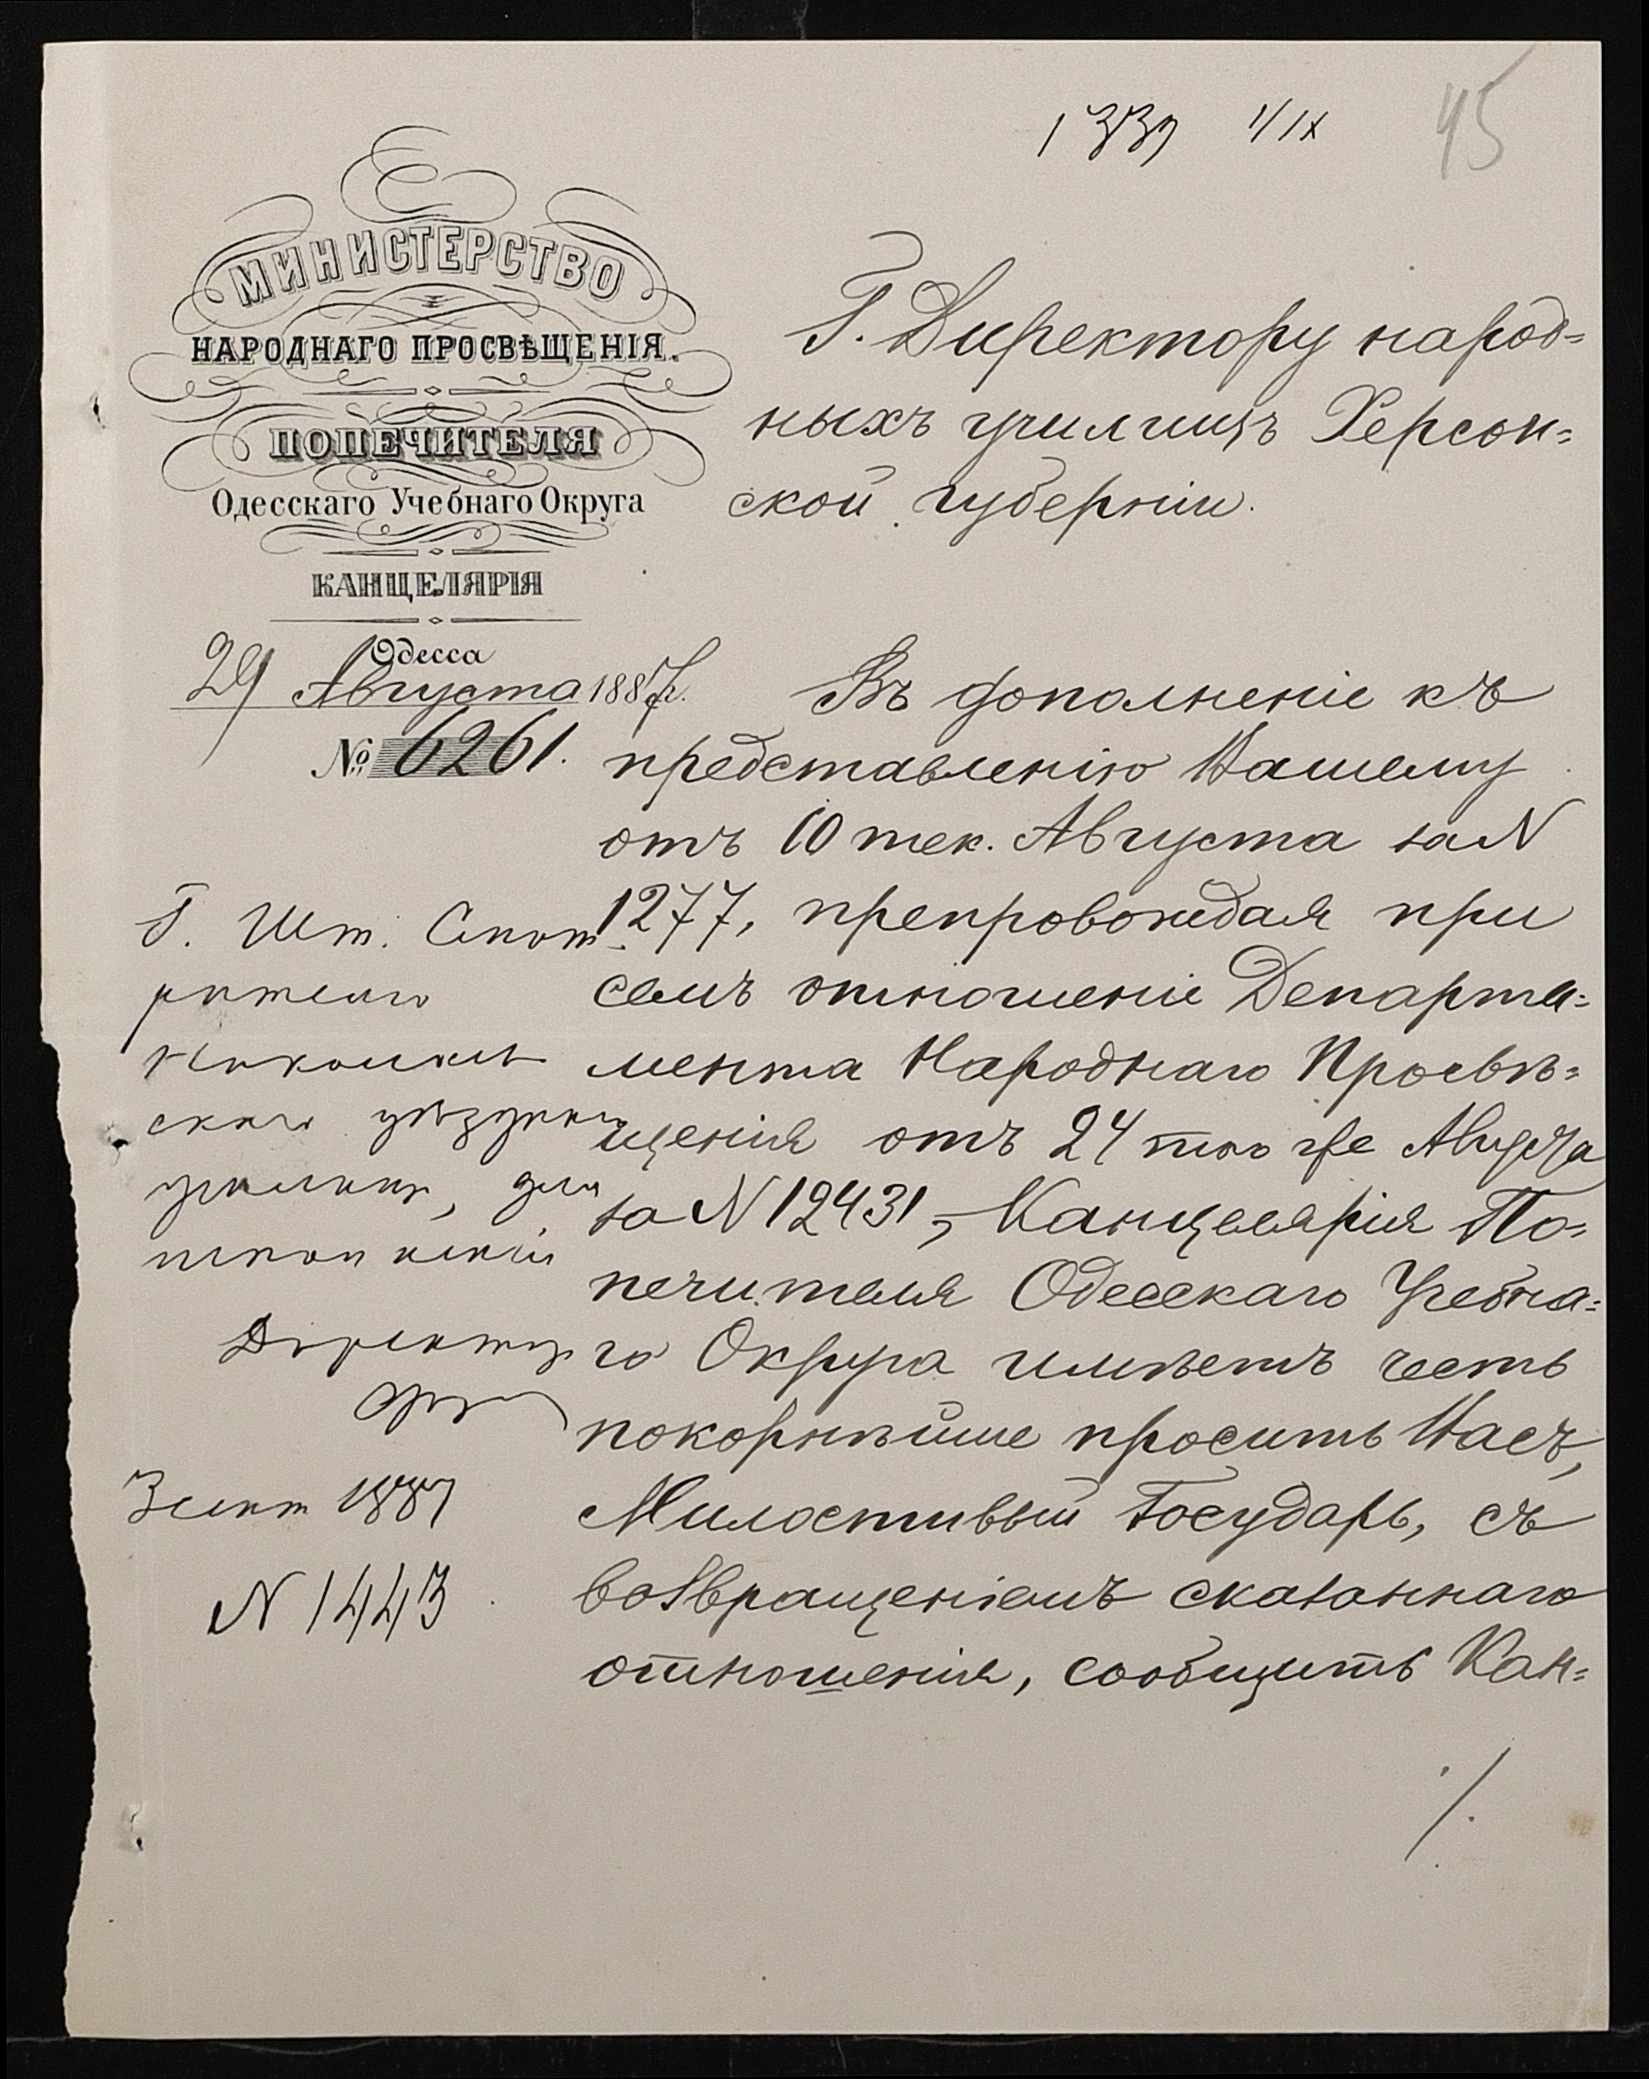 1339 1/IX
45
МИНИСТЕРСТВО
НАРОДНАГО ПРОСВѢЩЕНІЯ.
ПОПЕЧИТЕЛЯ
Одесскаго Учебнаго Округа
КАНЦЕЛЯРІЯ
Одесса
29 Августа 1887 г.
№ 6261.
Г. Директору народ=
ныхъ училищъ Херсон=
ской губерніи.
Въ дополненіе къ
представленію Вашему
отъ 10 тек. Августа за N
1277, препровождая при
семъ отношеніе Департа=
мента Народнаго Просвѣ=
щенія отъ 24 того же Августа
за N 12431, Канцелярія По=
печителя Одесскаго Учебна=
го Округа имѣетъ честь
покорнѣйше просить Васъ,
Милостивый Государь, съ
возвращеніемъ сказаннаго
отношенія, сообщить Кан=
./.
Г. Шт. Смот
рителю
Николаев
скаго уѣзднаго
училища, для
Директор
1887
N 1443